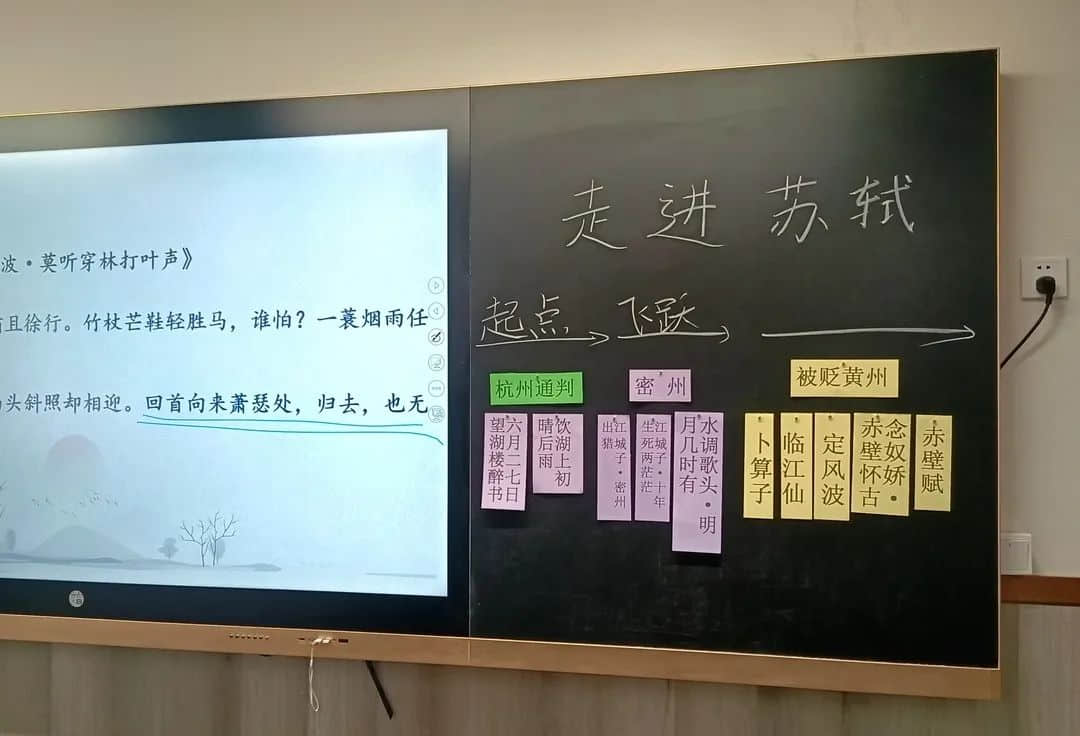 波·莫听穿林打叶声》
且徐行。竹杖芒鞋轻胜马，谁怕？一蓑烟雨任
头斜照却相迎。回首向来萧瑟处，归去，也无
走进苏轼
起点
飞跃
杭州通判
密州
被贬黄州
六月二七日
望湖楼醉书
饮湖上初
晴后雨
江城子·密州
出猎
江城子·十年
生死两茫茫
水调歌头·明
月几时有
卜算子
临江仙
定风波
念奴娇·
赤壁怀古
赤壁赋